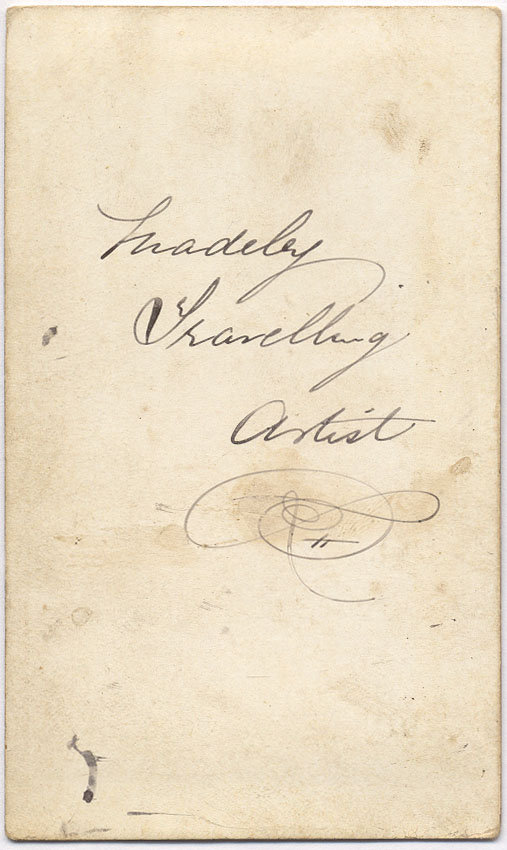 Madeley
Travelling
Artist